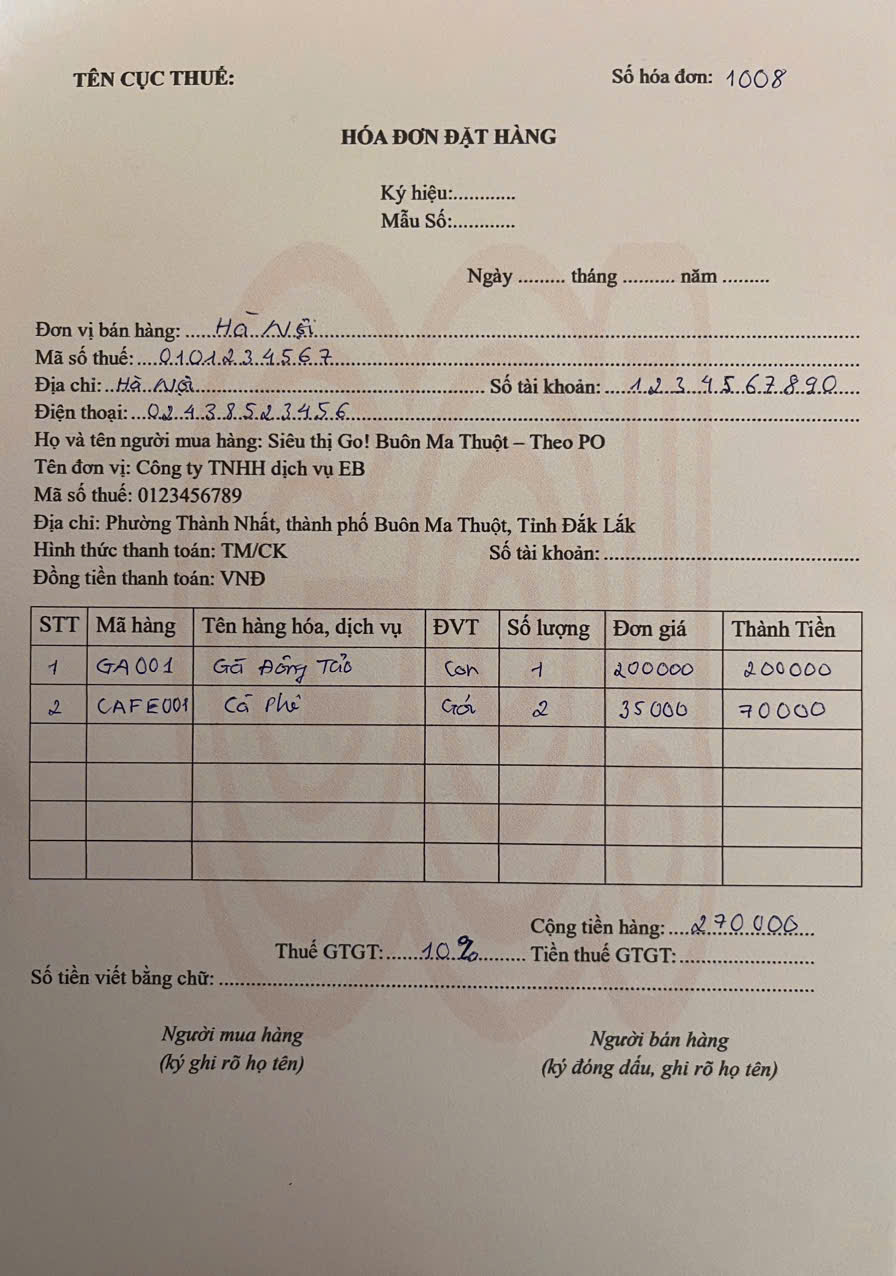 TÊN CỤC THUẾ: Số hóa đơn: 1008
HÓA ĐƠN ĐẶT HÀNG
Ký hiệu:............
Mẫu Số:............
Ngày ......... tháng .......... năm .........
Đơn vị bán hàng: Hà Nội
Mã số thuế: 0101234567
Địa chỉ: Hà Nội Số tài khoản: 1234567890
Điện thoại: 02438523456
Họ và tên người mua hàng: Siêu thị Go! Buôn Ma Thuột – Theo PO
Tên đơn vị: Công ty TNHH dịch vụ EB
Mã số thuế: 0123456789
Địa chỉ: Phường Thành Nhất, thành phố Buôn Ma Thuột, Tỉnh Đắk Lắk
Hình thức thanh toán: TM/CK Số tài khoản:
Đồng tiền thanh toán: VNĐ
STT Mã hàng Tên hàng hóa, dịch vụ ĐVT Số lượng Đơn giá Thành Tiền
1 GA001 Gà Đông Tảo Con 1 200000 200000
2 CAFE001 Cà Phê Gói 2 35000 70000
Cộng tiền hàng: 270000
Thuế GTGT: 10% Tiền thuế GTGT:
Số tiền viết bằng chữ:
Người mua hàng Người bán hàng
(ký ghi rõ họ tên) (ký đóng dấu, ghi rõ họ tên)